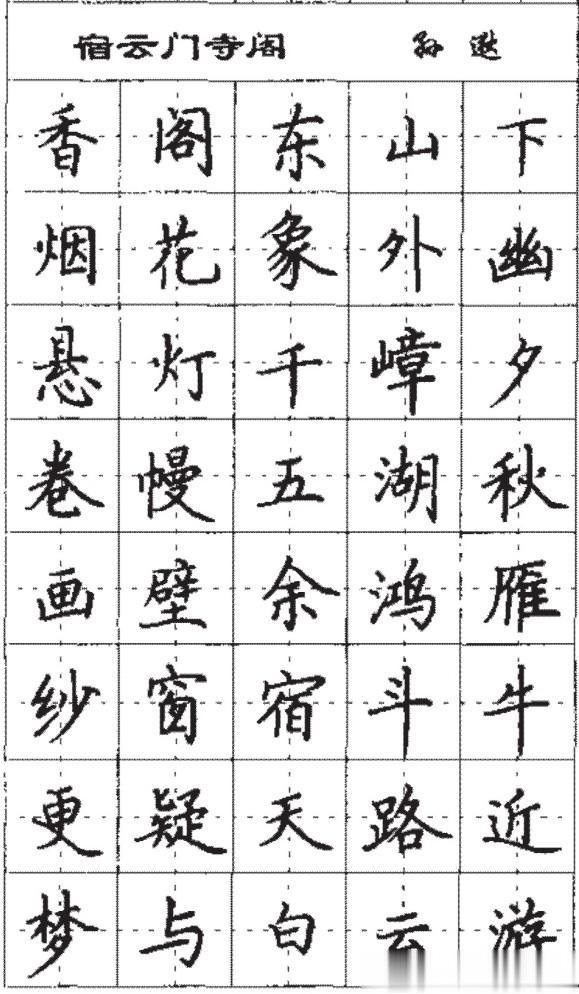 宿云门寺阁 孙逖
香阁东山下
烟花象外幽
悬灯千嶂夕
卷幔五湖秋
画壁余鸿雁
纱窗宿斗牛
更疑天路近
梦与白云游